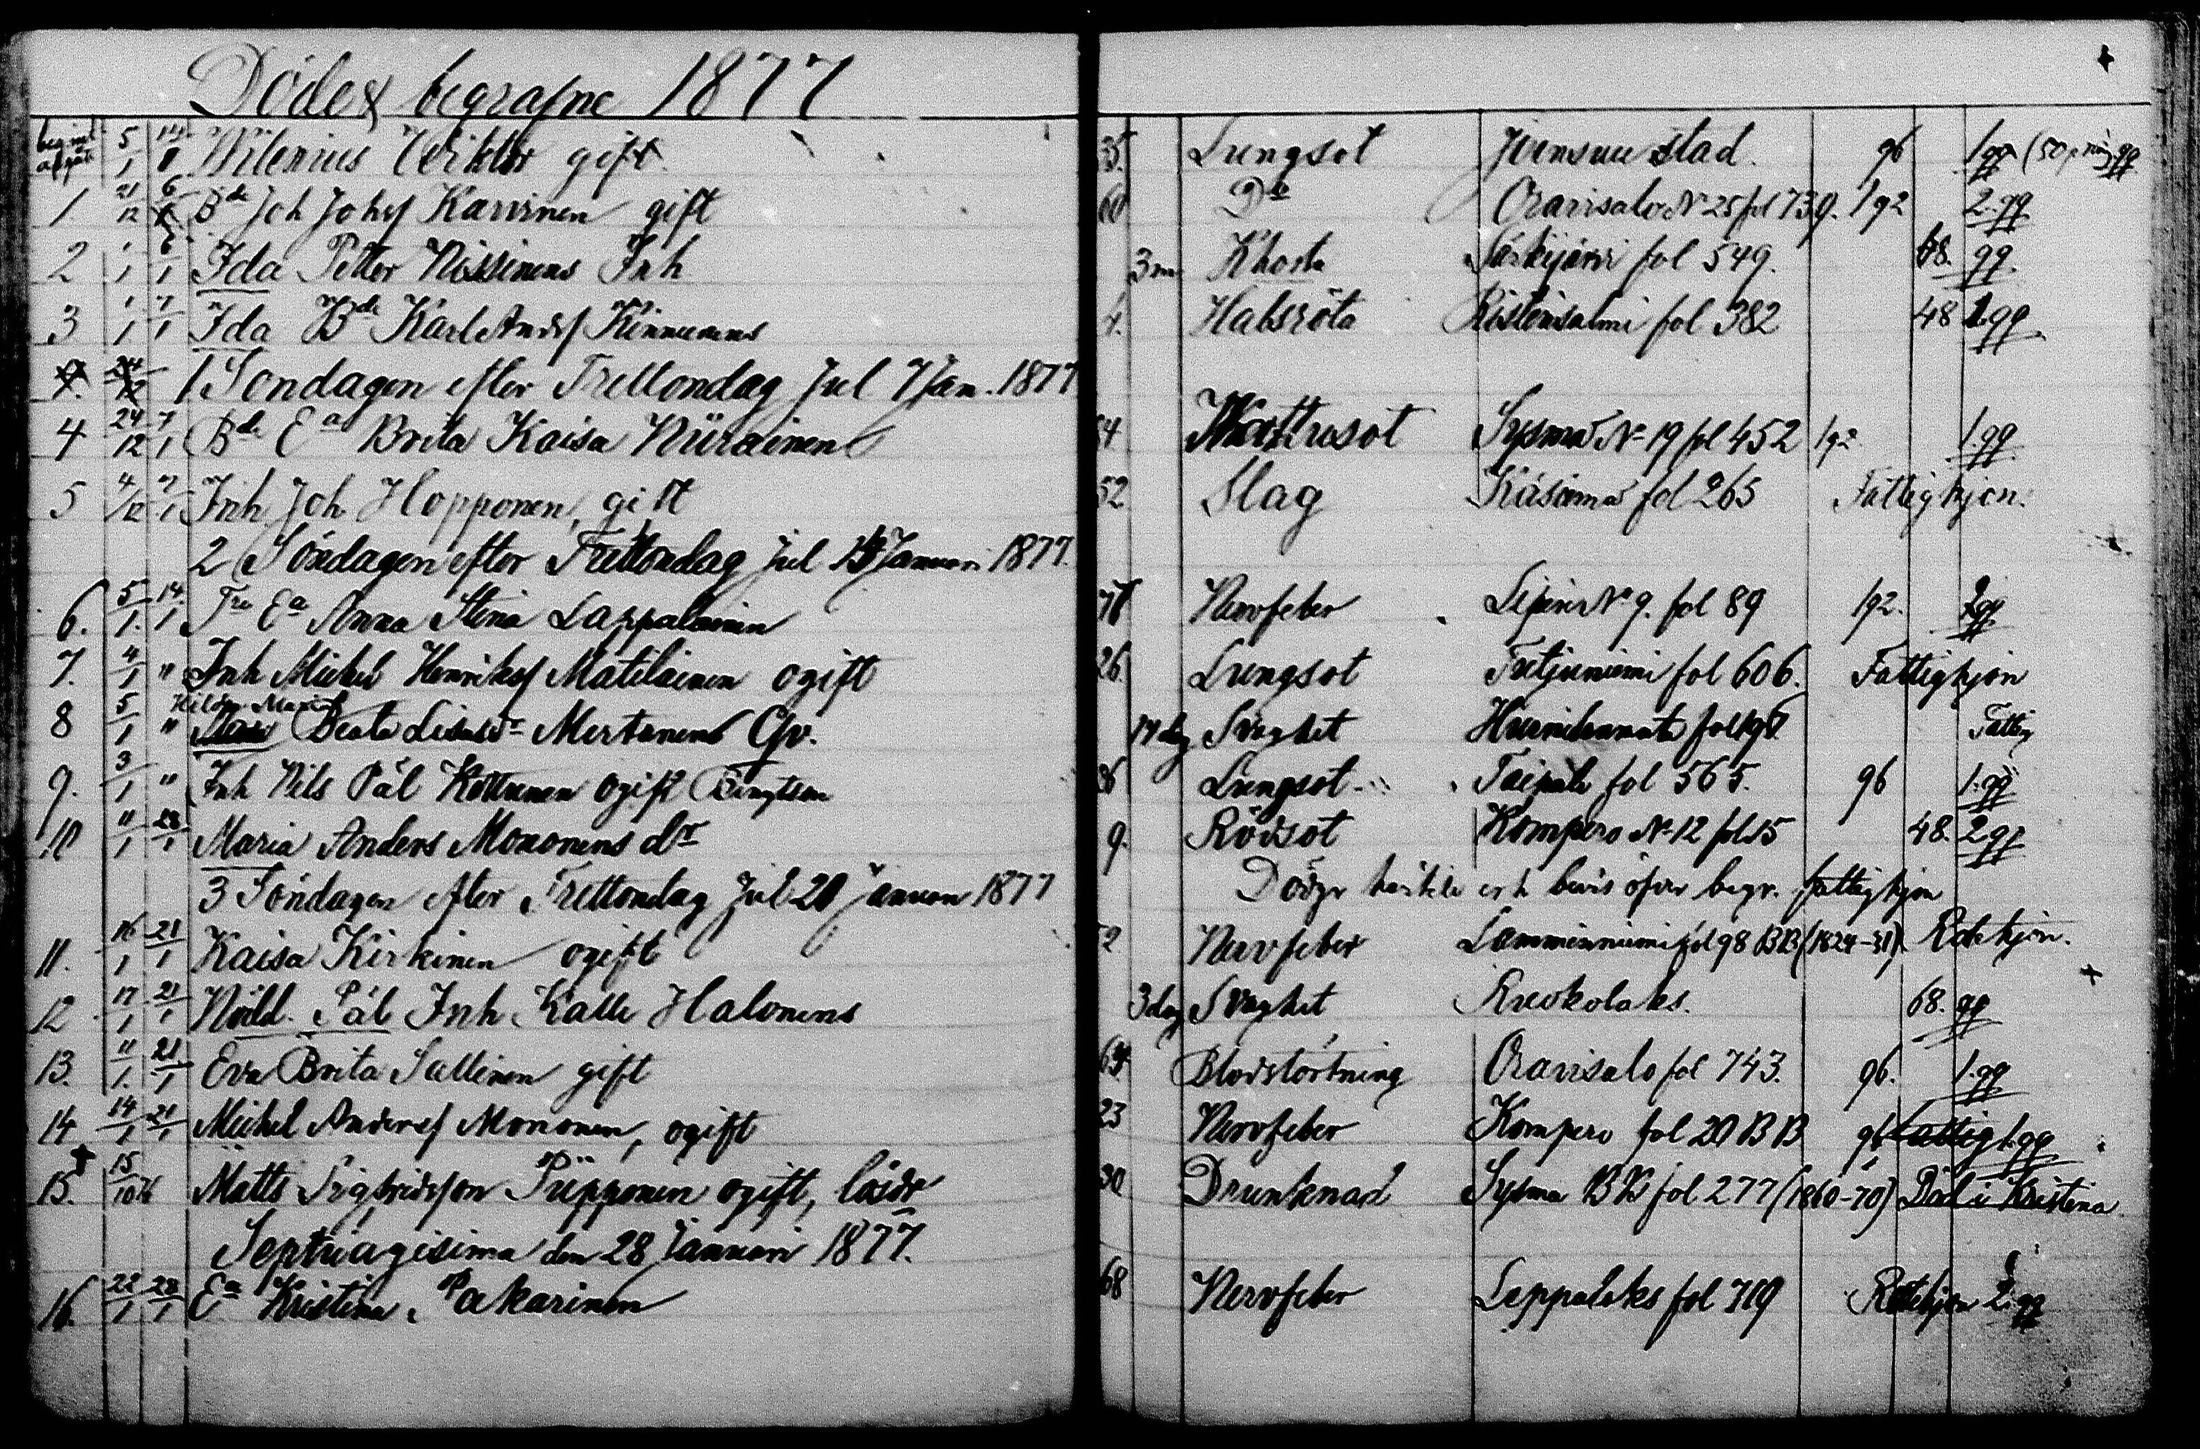 Döde & begrafne 1877
5/1 14/1 Wilenius Wiktor gift 35. Lungsot Joensuu stad. 96 1 gg (50 p
1. 21/12 6/1 Bde Joh Johsf Karvinen gift 60 Do Oravisalo No 25 fol 739. 192 2 gg
2 1/1 6/1 Ida Petter Nissinens Inh 3 m Khosta Särkijärvi fol 549. 48. gg.
3 1/1 7/1 Ida Bde Karl Andsf Kinnunens 4. Halsröta Ristensalmi fol 382 48 1 gg
1 Söndagen efter Trettondag Jul 7 Jan. 1877
4 24/12 7/1 Bde Ea Brita Kaisa Niiranen 64 Sysmä No 19 fol 452 192 1. gg
5 4/12 7/1 Inh Joh Hopponen, gift 52 Slag Käsämä fol 265 Fattighjon.
2 Söndagen efter Trettondag Jul 14 Januari 1877.
6. 5/1 14/1 Ea Anna Stina Lappalainen Nervfeber No 9. fol 89 192. gg
7. 4/1 " Inh Mickel Henriksf Matilainen ogift 26. Lungsot fol 606. Fattighjon
8 5/1 " Hilda Maria Beata Mertanens 14 dag Svaghet fol Fattig
9. 3/1 " Inh Nils Pål Kettunen ogift 36 Lungsot Taipale fol 565. 96 1. gg
10 11/1 28/1 Maria Anders Monanens dr 9. Rödsot Kompero No 12 fol 15 48. 2 gg
3 Söndagen efter Trettondag Jul 20 Januari 1877 bevis öfver begr. fattighjon
11. 16/1 21/1 Kaisa Kirkinen ogift 72 Nervfeber Lamminniemi fol 98 BB (1824-31) Rotehjon.
12 17/1 21/1 Nöd. Pål Inh Kalle Halonens 3 dag Svaghet Kuokolaks. 68. gg
13. 11/1 21/1 Eva Brita Sallinen gift 63 Blodstörtning Oravisalo fol 743. 96. 1. gg
14 14/1 21/1 Mickel Andersf Mononen, ogift 23 Nervfeber Kompero fol 20 BB 96 Fattig 1. gg
15. 15/10 76 Matts Sigfridsson Piipponen ogift, lösdr 30 Drunknad Sysmä BB fol 277 (1860-70) Pål i Kristina
Septuagesima den 28 Januari 1877.
16. 22/1 28/1 Ea Kristina Pakarinen 68 Nervfeber Leppälaks fol 719 Rotehjon 2. gg